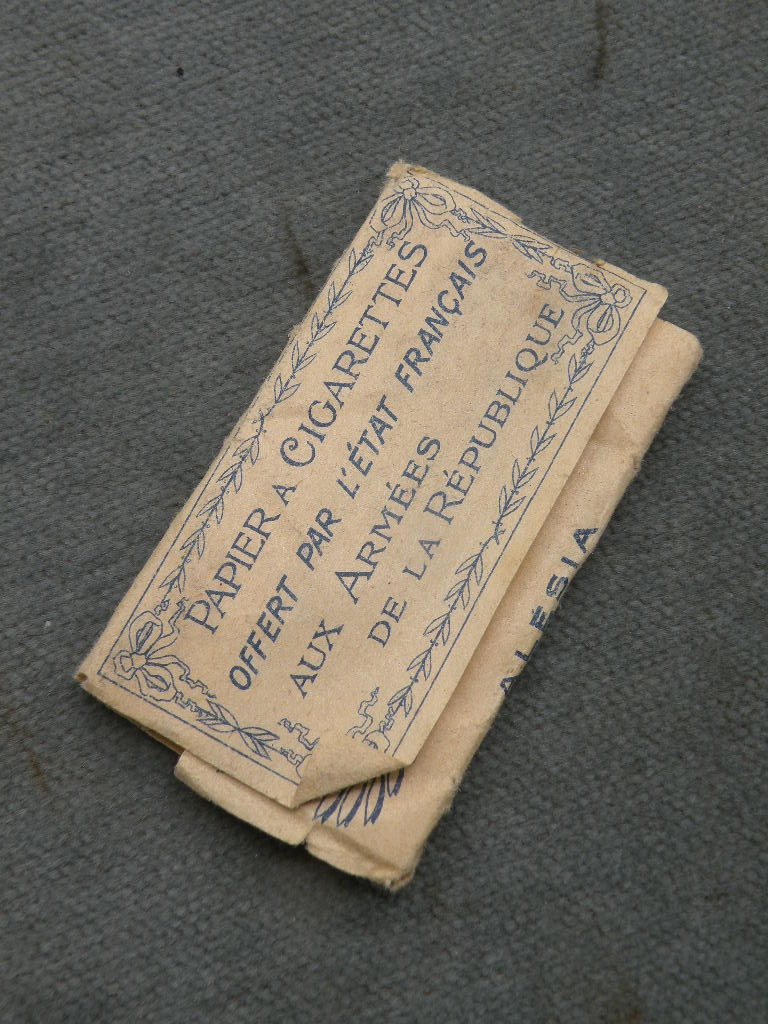 PAPIER A CIGARETTES
OFFERT PAR L'ÉTAT FRANÇAIS
AUX ARMÉES
DE LA RÉPUBLIQUE
ALÉSIA